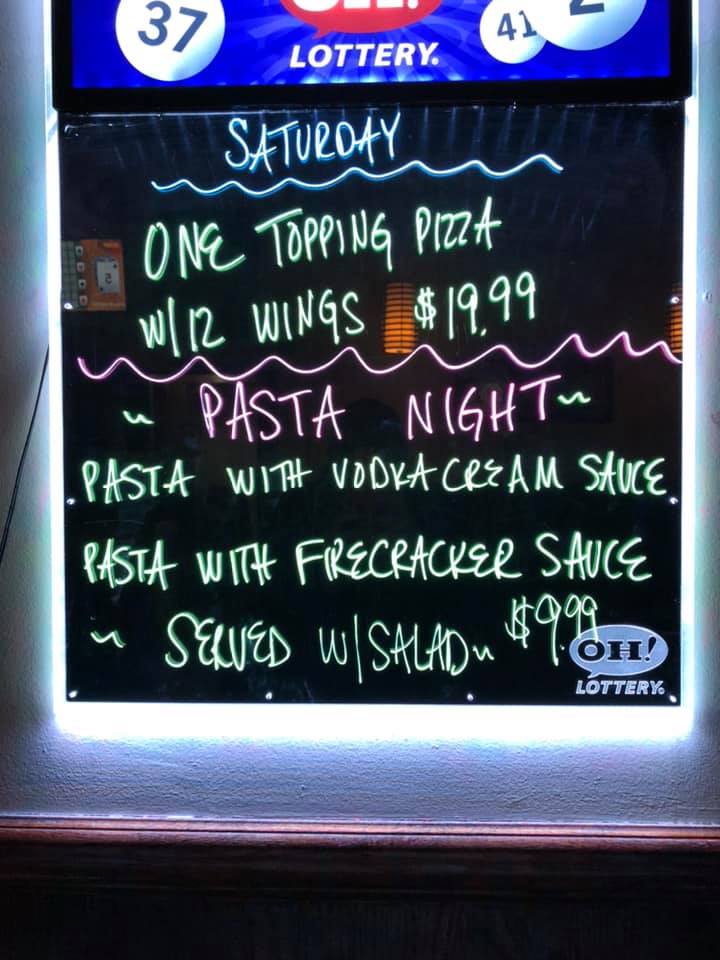 37
41
2
LOTTERY.
SATURDAY
ONE TOPPING PIZZA
W/12 WINGS $19.99
~ PASTA NIGHT ~
PASTA WITH VODKA CREAM SAUCE
PASTA WITH FIRECRACKER SAUCE
~ SERVED W/SALAD ~ $9.99
OH!
LOTTERY.